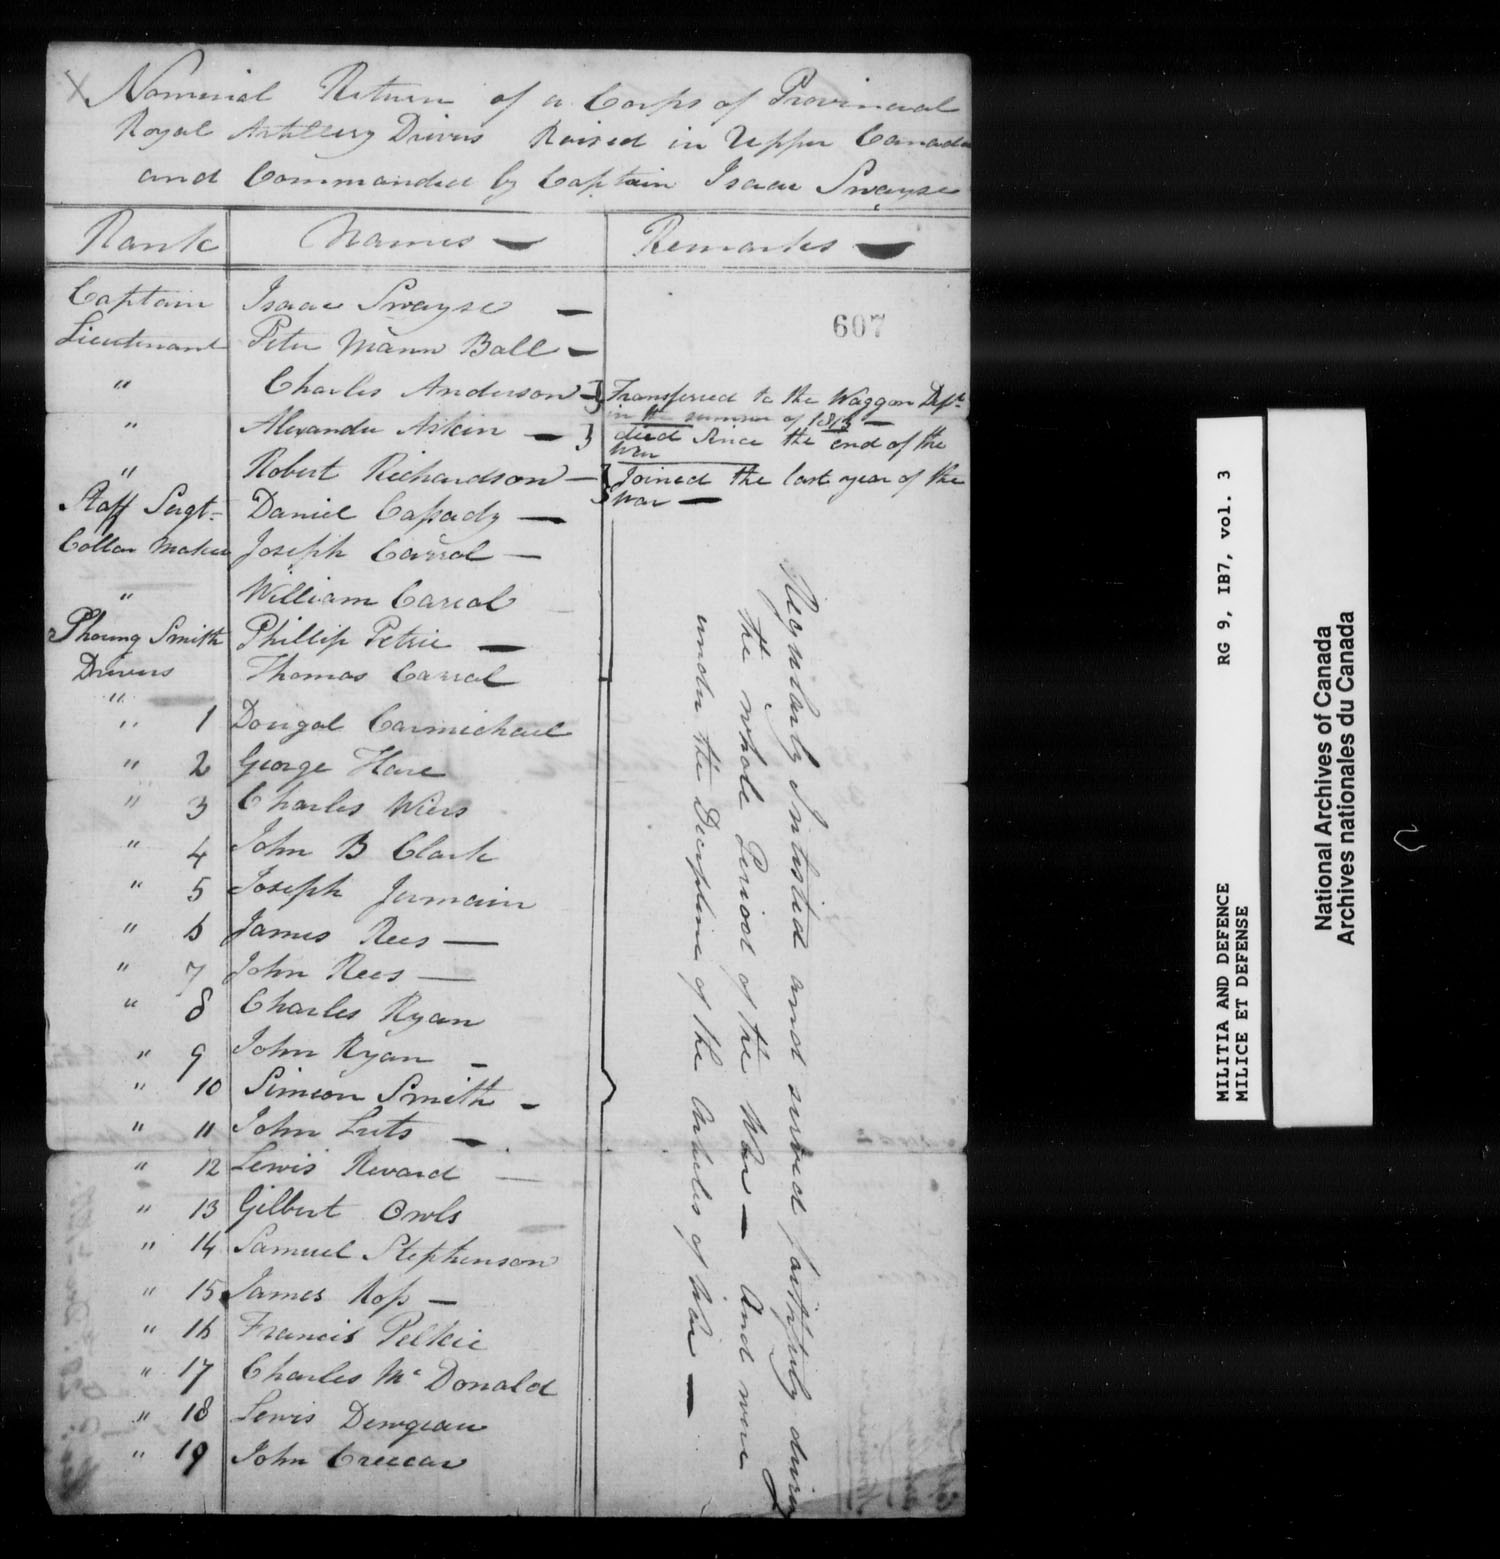 Nominal Return of a Corps of Provincial
Royal Artillery Drivers Raised in Upper Canada
and Commanded by Captain Isaac Swayse
Rank Names — Remarks —
Captain Isaac Swayse —
607
Lieutenant Peter Mann Ball —
" Charles Anderson — Transferred to the Waggon Dept
in the summer of 1813 —
" Alexander Askin — died Since the end of the
War
" Robert Richardson — Joined the last year of the
War —
Staff Sergt Daniel Casady —
Collar Maker Joseph Carrol —
" William Carrol
Shoeing Smith Phillip Petrie —
Drivers Thomas Carrol
"
" 1 Dougal Carmichael
" 2 George Hare
" 3 Charles Wiers
" 4 John B Clark
" 5 Joseph Jermain
" 6 James Rees —
" 7 John Rees —
" 8 Charles Ryan
" 9 John Ryan —
" 10 Simeon Smith —
" 11 John Luts —
" 12 Lewis Revard —
" 13 Gilbert Owls
" 14 Samuel Stephenson
" 15 James Ross —
" 16 Francis Pelkie
" 17 Charles Mc Donald
" 18 Lewis
" 19 John
Regularly Intisted and served faithfully during
the whole Period of the War — And were
under the Decipline of the Articles of War —
MILITIA AND DEFENCE RG 9, IB7, vol. 3
MILICE ET DEFENSE
National Archives of Canada
Archives nationales du Canada